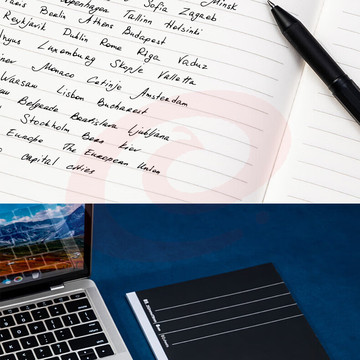 Copenhagen Sofia Minsk
Paris Berlin Athens Tallinn Zagreb
Reykjavik Dublin Rome Budapest Helsinki
Vilnyus Luxembourg Riga Vaduz
Monaco Skopje Valletta
Warsaw Lisbon Cetinje Amsterdam
Belgrade Bucharest
Stockholm Bratislava Ljubljana
Europe Bern Kiev
capital cities The European Union